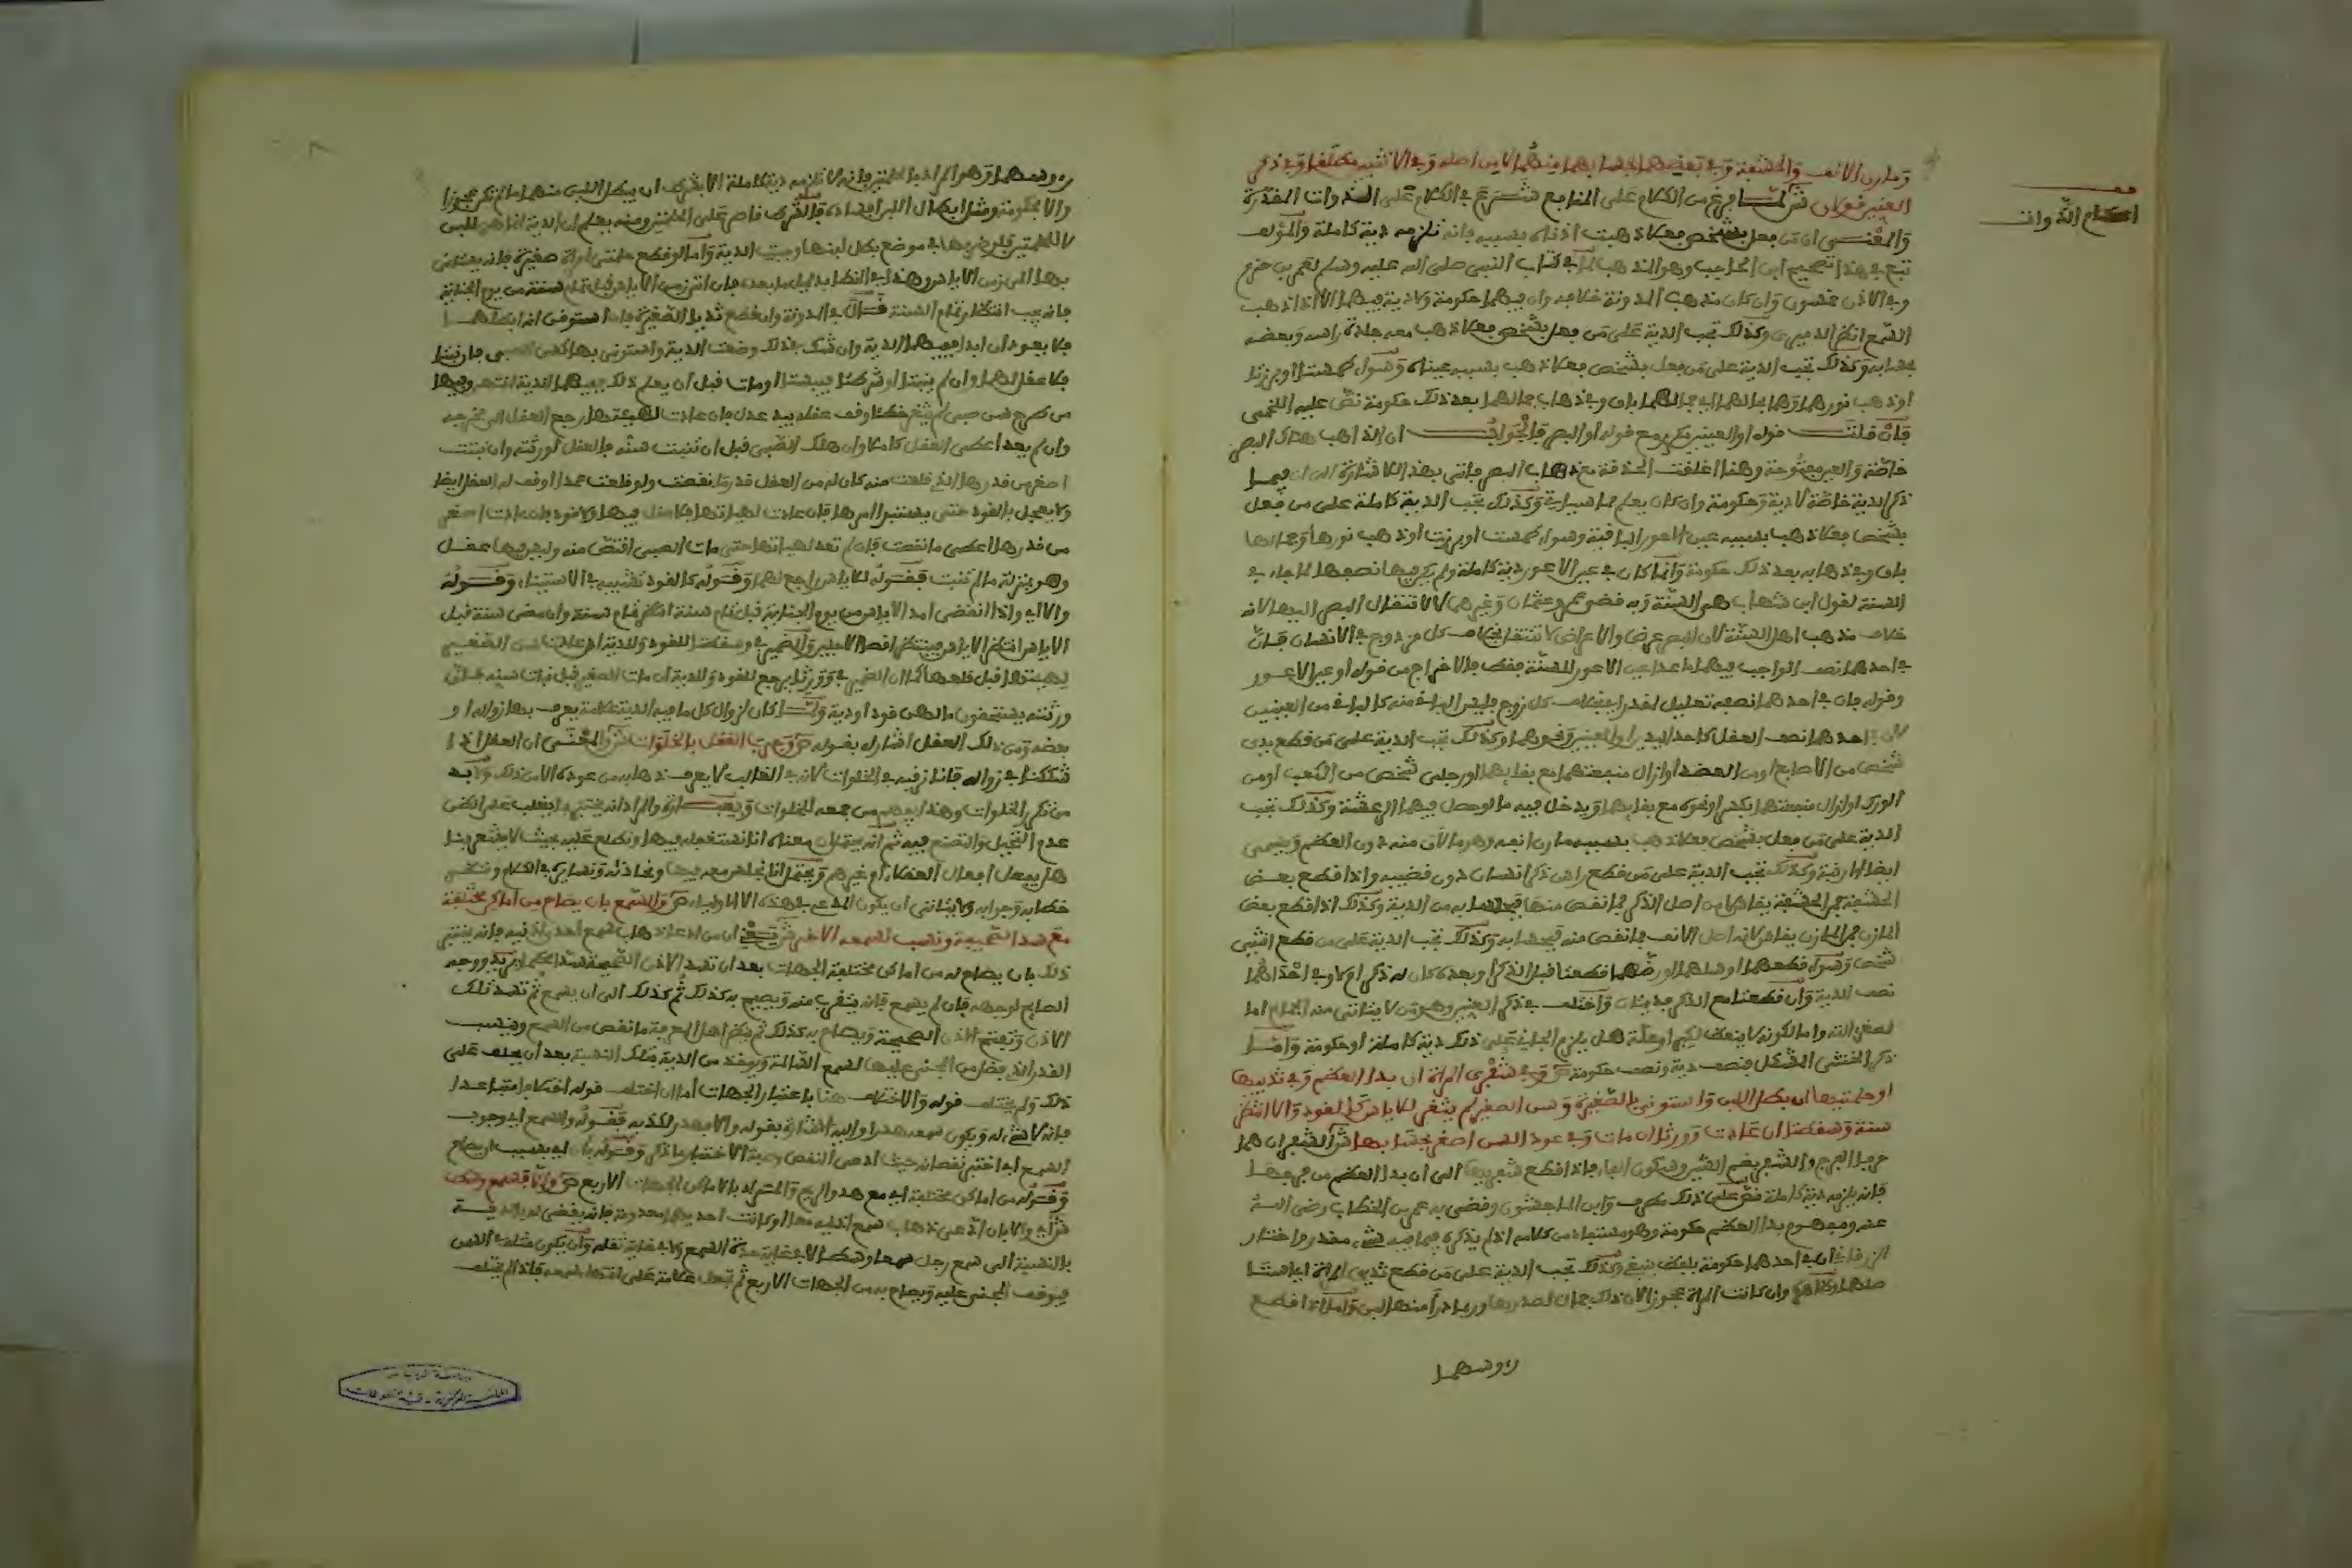 ومارن الأنف والحشفة وفي بعضهما بحسابهما منهما لا من أصله وفي الأنثيين مطلقا وفي ذكر
العنين قولان ش لما فرغ من الكلام على المنافع شرع في الكلام على الذوات المقدرة
أحكام الذوات
والمعنى أن من فعل بشخص فعلا ذهبت أذناه بسببه فإنه تلزمه دية كاملة والمؤلف
تبع في هذا تصحيح ابن الحاجب وهو المذهب لما في كتاب النبي صلى الله عليه وسلم لعمر بن حزم
وفي الأذن خمسون وإن كان مذهب المدونة خلافه وأن فيهما حكومة ولا دية فيهما إلا إذا ذهب
السمع انظر الدميري وكذلك تجب الدية على من فعل بشخص فعلا ذهب معه جلدة رأسه وبعضه
بحسابه وكذلك تجب الدية على من فعل بشخص فعلا ذهب بسببه عيناه وسواء طمستا أو برزتا
أو ذهب نورهما وهما بحالهما في جمالهما فإن وفي ذهاب جمالهما بعد ذلك حكومة نص عليه اللخمي
فإن قلت قوله أو العينين يكرر مع قوله أو البصر فالجواب أن الذاهب هناك البصر
خاصة والعين مفتوحة وهنا أغلقت الحدقة مع ذهاب البصر فأتى بهذا للإشارة إلى أن فيها
ذكر الدية خاصة لا دية وحكومة وإن كان يعلم مما سيأتي وكذلك تجب الدية كاملة على من فعل
بشخص فعلا ذهب بسببه عين الأعور الباقية وسواء طمست أو برزت أو ذهب نورها وجمالها
باق وفي ذهابه بعد ذلك حكومة وإنما كان في عين الأعور دية كاملة ولم يكن فيها نصفها لما جاء في
السنة لقول ابن شهاب هي السنة وبه قضى عمر وعثمان وغيرهما لا لانتقال البصر إليها لأنه
خلاف مذهب أهل السنة لأن البصر عرض والأعراض لا تنتقل بخلاف كل مزدوج في الإنسان فإن
في أحدهما نصف الواجب فيهما ما عدا عين الأعور للسنة فقط فالإخراج من قوله أو عين الأعور
وقوله فإن في أحدهما نصفه تعليل لمقدر أي بخلاف كل زوج فليس الباقي منه كالباقي من العينين
لأن في أحدهما نصف العقل كأحد اليدين أو العينين ونحوهما وكذلك تجب الدية على من قطع يدي
شخص من الأصابع أو من العضد أو أزال منفعتهما مع بقائهما أو رجلي شخص من الكعب أو من
الورك أو أزال منفعتهما بكسر أو نحوه مع بقائهما ويدخل فيه ما لو حصل فيهما الرعشة وكذلك تجب
الدية على من فعل بشخص فعلا ذهب بسببه مارن أنفه وهو ما لان منه دون العظم ويسمى
أيضا أرنبة وكذلك تجب الدية على من قطع رأس ذكر إنسان دون قضيبه وإذا قطع بعض
الحشفة فمن الحشفة يقاس لا من أصل الذكر فما نقص منها فبحسابه من الدية وكذلك إذا قطع بعض
المارن فمن المارن يقاس لا من أصل الأنف فما نقص منه فبحسابه وكذلك تجب الدية على من قطع أنثيي
شخص وسواء قطعهما أو سلهما أو رضهما قطعتا قبل الذكر أو بعده كان له ذكر أم لا وفي إحداهما
نصف الدية وإن قطعتا مع الذكر فديتان واختلف في ذكر العنين وهو من لا يتأتى منه الجماع إما
لصغر آلته وإما لكونه لا ينعظ لكبر أو علة هل يلزم الجاني على ذلك دية كاملة أو حكومة وأما
ذكر الخنثى المشكل فنصف دية ونصف حكومة ص وفي شفري المرأة إن بدا العظم وفي ثدييها
أو حلمتيهما إن بطل اللبن واستؤني بالصغيرة وسن الصغير لم يثغر للإياس كالقود وإلا انتظر
سنة وسقطا إن عادت وورثا إن مات وفي عود السن أصغر بحسابها ش الشفران هما
حرفا الفرج والشفر بضم الشين وسكون الفاء فإذا قطع شفريها إلى أن بدا العظم من فرجها
فإنه يلزمه دية كاملة نص على ذلك مطرف وابن الماجشون وقضى به عمر بن الخطاب رضي الله
عنه ومفهوم بدا العظم حكومة وهو مستفاد من كلامه إذ لم يذكره فيما فيه شيء مقدر واختار
الزرقاني أن في أحدهما حكومة بلفظ ينبغي وكذلك تجب الدية على من قطع ثديي امرأة استأصل
وإن كانت المرأة عجوزا لأن ذلك جمال لصدرها وربما درا منهما اللبن وأما إذا قطع
رؤوسهما
رؤوسهما وهو المراد بالحلمتين فإنه لا تلزمه دية كاملة إلا بشرط أن يبطل اللبن منهما ما لم تكن عجوزا
وإلا فحكومة ومثل إبطال اللبن إفساده فالشرط خاص على الحلمتين ومنه يعلم أن الدية إنما هي للبن
لا للحلمتين فلو ضربها في موضع بطل لبنها وجبت الدية وأما لو قطع حلمتي امرأة صغيرة فإنه يستأنى
بها إلى زمن الإياس وهذا في الخطأ بدليل ما بعده فإن أتى زمن الإياس قبل تمام سنة من يوم الجناية
فإنه يجب انتظار تمام السنة قال في المدونة وإن قطع ثديا الصغيرة فإن استوقن أنه أبطلهما
فلا يعود أبدا ففيهما الدية وإن شك في ذلك وضعت الدية واستؤني بها كسن الصبي فإن نبتا
فلا عقل لهما وإن لم ينبتا أو شرطتا فيبستا أو مات قبل أن يعلم ذلك ففيهما الدية انتهى وفيها
من طرح سن صبي لم يثغر خطأ وقف عقله بيد عدل فإن عادت لهيئتها رجع العقل إلى مخرجه
وإن لم يعد أعطى العقل كاملا وإن هلك الصبي قبل أن تنبت سنه فالعقل لورثته وإن نبتت
أصغر من قدرها الذي قلعت منه كان له من العقل قدر ما نقصت ولو قلعت عمدا أوقف له العقل أيضا
ولا يعجل بالقود حتى يستبرأ أمرها فإن عادت لهيئتها فلا عقل فيها ولا قود وإن عادت أصغر
من قدرها أعطي ما نقصت فإن لم تعد لهيئتها حتى مات الصبي اقتص منه وليس فيها عقل
وهو بمنزلة ما لم تنبت فقوله للإياس راجع لهما وقوله كالقود تشبيه في الاستيناء وقوله
وإلا أي وإذا انقضى أمد الإياس من يوم الجناية قبل تمام سنة انتظر تمام سنة وإن مضى سنة قبل
الإياس انتظر الإياس فينتظر أقصى الأجلين والضمير في وسقطا للقود والدية إن عادت سن الصغير
لهيئتها قبل قلعها كما أن الضمير في وورثا يرجع للقود والدية إن مات الصغير قبل نبات سنه فإن
ورثته يستحقون ما له من قود أو دية ولما كان لزوال كل ما فيه الدية علامة يعرف بها زواله أو
بعضه ومن ذلك العقل أشار له بقوله ص وجرب العقل بالخلوات ش والمعنى أن العقل إذا
شككنا في زواله فإننا نرقبه في الخلوات لأنه في الغالب لا يعرف ذهابه من عوده إلا من ذلك ولا بد
من تكرر الخلوات وهذا يفهم من جمعه الخلوات
عدم التحيل والتصنع فيه ثم إنه يحتمل أن معناه أننا نستغفله فيها ونطلع عليه بحيث لا يشعر بنا
هل يفعل أفعال العقلاء أو غيرهم ويحتمل أنا نجلس معه فيها ونحادثه ونسايره في الكلام وننظر
خطابه وجوابه ولا يتأتى أن يكون المدعي في هذه إلا أولياءه ص والسمع بأن يصاح من أماكن مختلفة
مع سد الصحيحة ونسب لسمعه الآخر ش يعني أن من ادعى ذهاب سمع أحد أذنيه فإنه يختبر
ذلك بأن يصاح له من أماكن مختلفة الجهات بعد أن تسد الأذن الصحيحة سدا محكما ووجه
الصايح لوجهه فإن لم يسمع فإنه يتقرب منه ويصيح به كذلك ثم كذلك إلى أن يسمع ثم تسد تلك
الأذن وتفتح الأذن الصحيحة ويصاح به كذلك ثم ينظر أهل المعرفة ما نقص من السمع وينسب
القدر الذي نقص من المجني عليها لسمع السالمة ويؤخذ من الدية بتلك النسبة بعد أن يحلف على
ذلك ولم يختلف قوله والاختلاف هنا باعتبار الجهات أما إن اختلف قوله اختلافا متباعدا
فإنه لا شيء له ويكون سمعه هدرا وإليه أشار بقوله وإلا فهدر لكذبه فقوله والسمع أي وجرب
السمع أي اختبر نقصانه حيث ادعى النقص وصفة الاختبار ما ذكر وقوله بأن أي بسبب أن يصاح
وقوله من أماكن مختلفة أي مع هدو الريح والمراد بالأماكن الجهات الأربع ص وإلا فسمع وسط
ش أي وإلا بأن ادعى ذهاب سمع أذنيه معا أو كانت إحديهما معدومة فإنه يقضى له بالدية
بالنسبة إلى سمع رجل سمعا وسطا لا في غاية حدة السمع ولا في غاية ثقله وأن يكون مثله في السن
فيوقف المجني عليه ويصاح به من الجهات الأربع ثم تجعل علامة على انتهاء سمعه فإذا لم يختلف